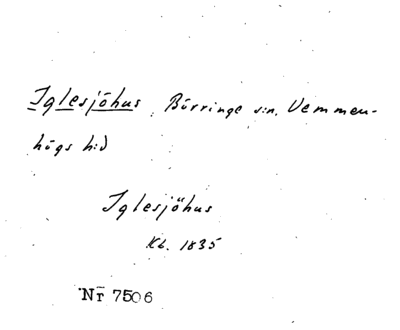 Iglesjöhus, Börringe s:n, Vemmen-
högs h:d
Iglesjöhus
Kb. 1835
Nr 7506